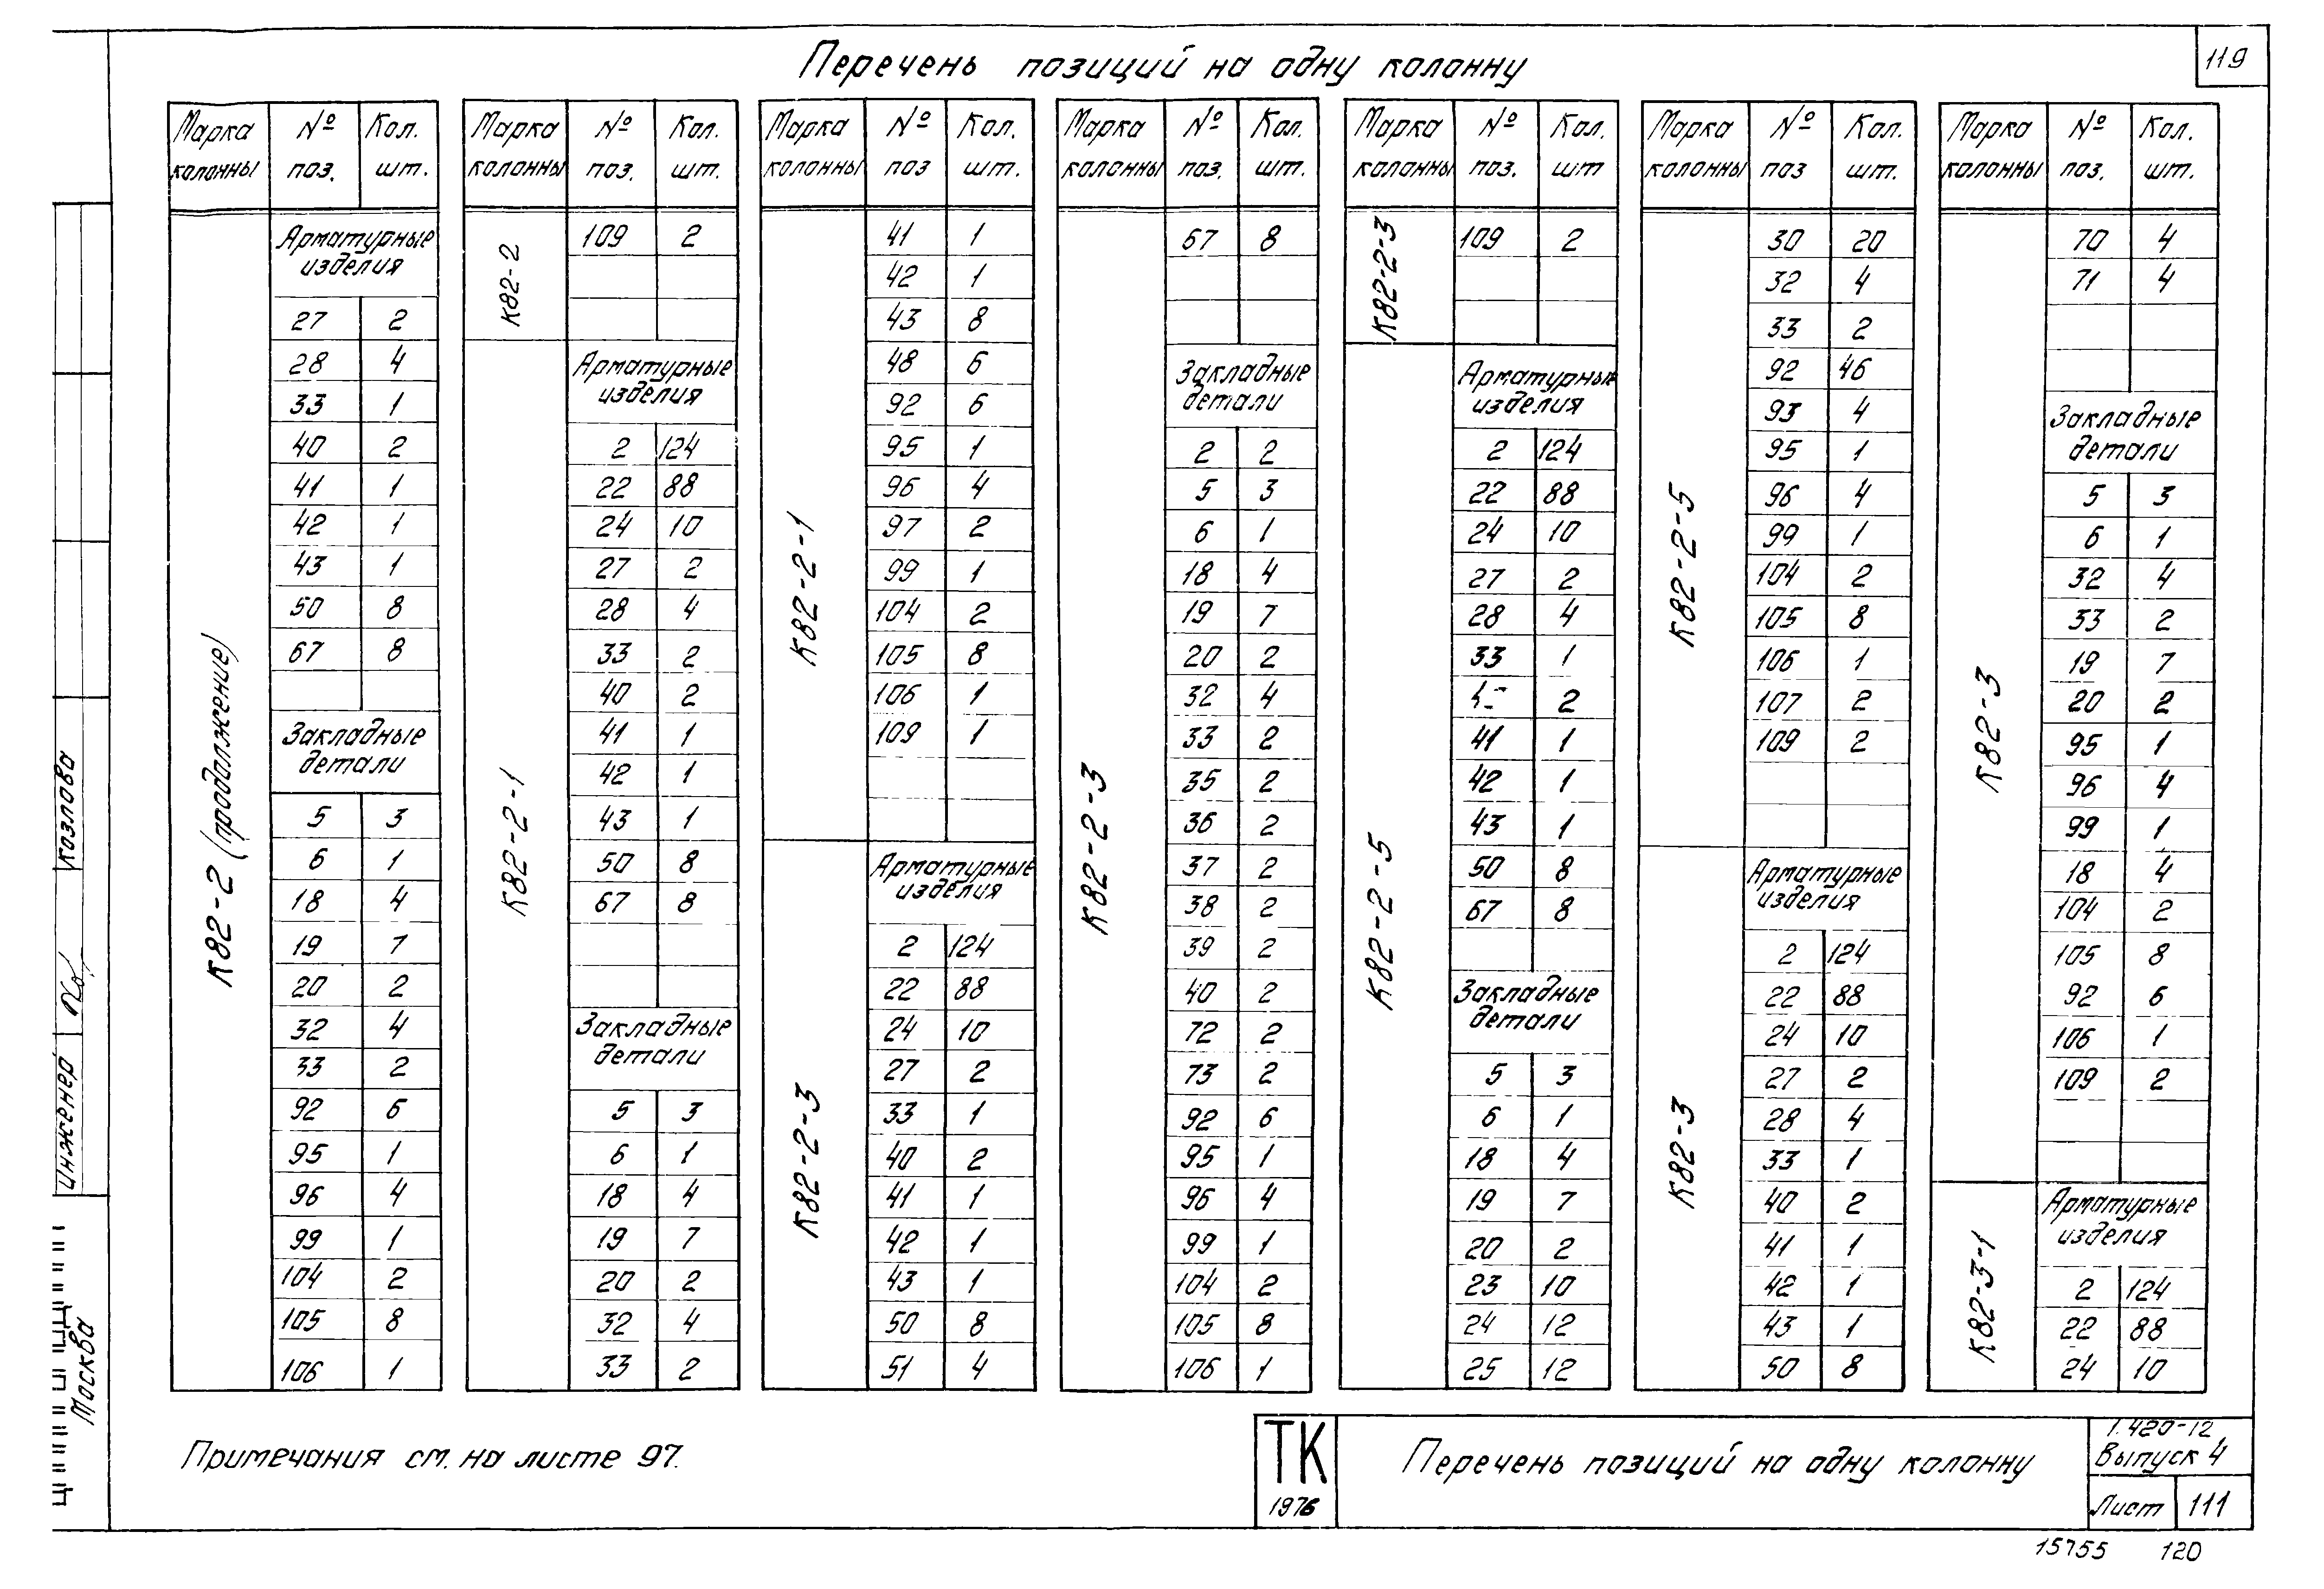 119
Перечень позиций на одну колонну
Марка колонны № поз. Кол. шт.
К82-2 (продолжение)
Арматурные изделия
27 2
28 4
33 1
40 2
41 1
42 1
43 1
50 8
67 8
Закладные детали
5 3
6 1
18 4
19 7
20 2
32 4
33 2
92 6
95 1
96 4
99 1
104 2
105 8
106 1
Марка колонны № поз. Кол. шт.
К82-2
109 2
К82-2-1
Арматурные изделия
2 124
22 88
24 10
27 2
28 4
33 2
40 2
41 1
42 1
43 1
50 8
67 8
Закладные детали
5 3
6 1
18 4
19 7
20 2
32 4
33 2
Марка колонны № поз Кол. шт.
К82-2-1
41 1
42 1
43 8
48 6
92 6
95 1
96 4
97 2
99 1
104 2
105 8
106 1
109 1
К82-2-3
Арматурные изделия
2 124
22 88
24 10
27 2
33 1
40 2
41 1
42 1
43 1
50 8
51 4
Марка колонны № поз. Кол. шт.
К82-2-3
67 8
Закладные детали
2 2
5 3
6 1
18 4
19 7
20 2
32 4
33 2
35 2
36 2
37 2
38 2
39 2
40 2
72 2
73 2
92 6
95 1
96 4
99 1
104 2
105 8
106 1
Марка колонны № поз. Кол. шт
К82-2-3
109 2
К82-2-5
Арматурные изделия
2 124
22 88
24 10
27 2
28 4
33 1
2
41 1
42 1
43 1
50 8
67 8
Закладные детали
5 3
6 1
18 4
19 7
20 2
23 10
24 12
25 12
Марка колонны № поз Кол. шт.
К82-2-5
30 20
32 4
33 2
92 46
93 4
95 1
96 4
99 1
104 2
105 8
106 1
107 2
109 2
К82-3
Арматурные изделия
2 124
22 88
24 10
27 2
28 4
33 1
40 2
41 1
42 1
43 1
50 8
Марка колонны № поз. Кол. шт.
К82-3
70 4
71 4
Закладные детали
5 3
6 1
32 4
33 2
19 7
20 2
95 1
96 4
99 1
18 4
104 2
105 8
92 6
106 1
109 2
К82-3-1
Арматурные изделия
2 124
22 88
24 10
Козлова
инженер
Москва
Примечания см. на листе 97.
ТК
1976
Перечень позиций на одну колонну
1.420-12
Выпуск 4
Лист 111
15755 120